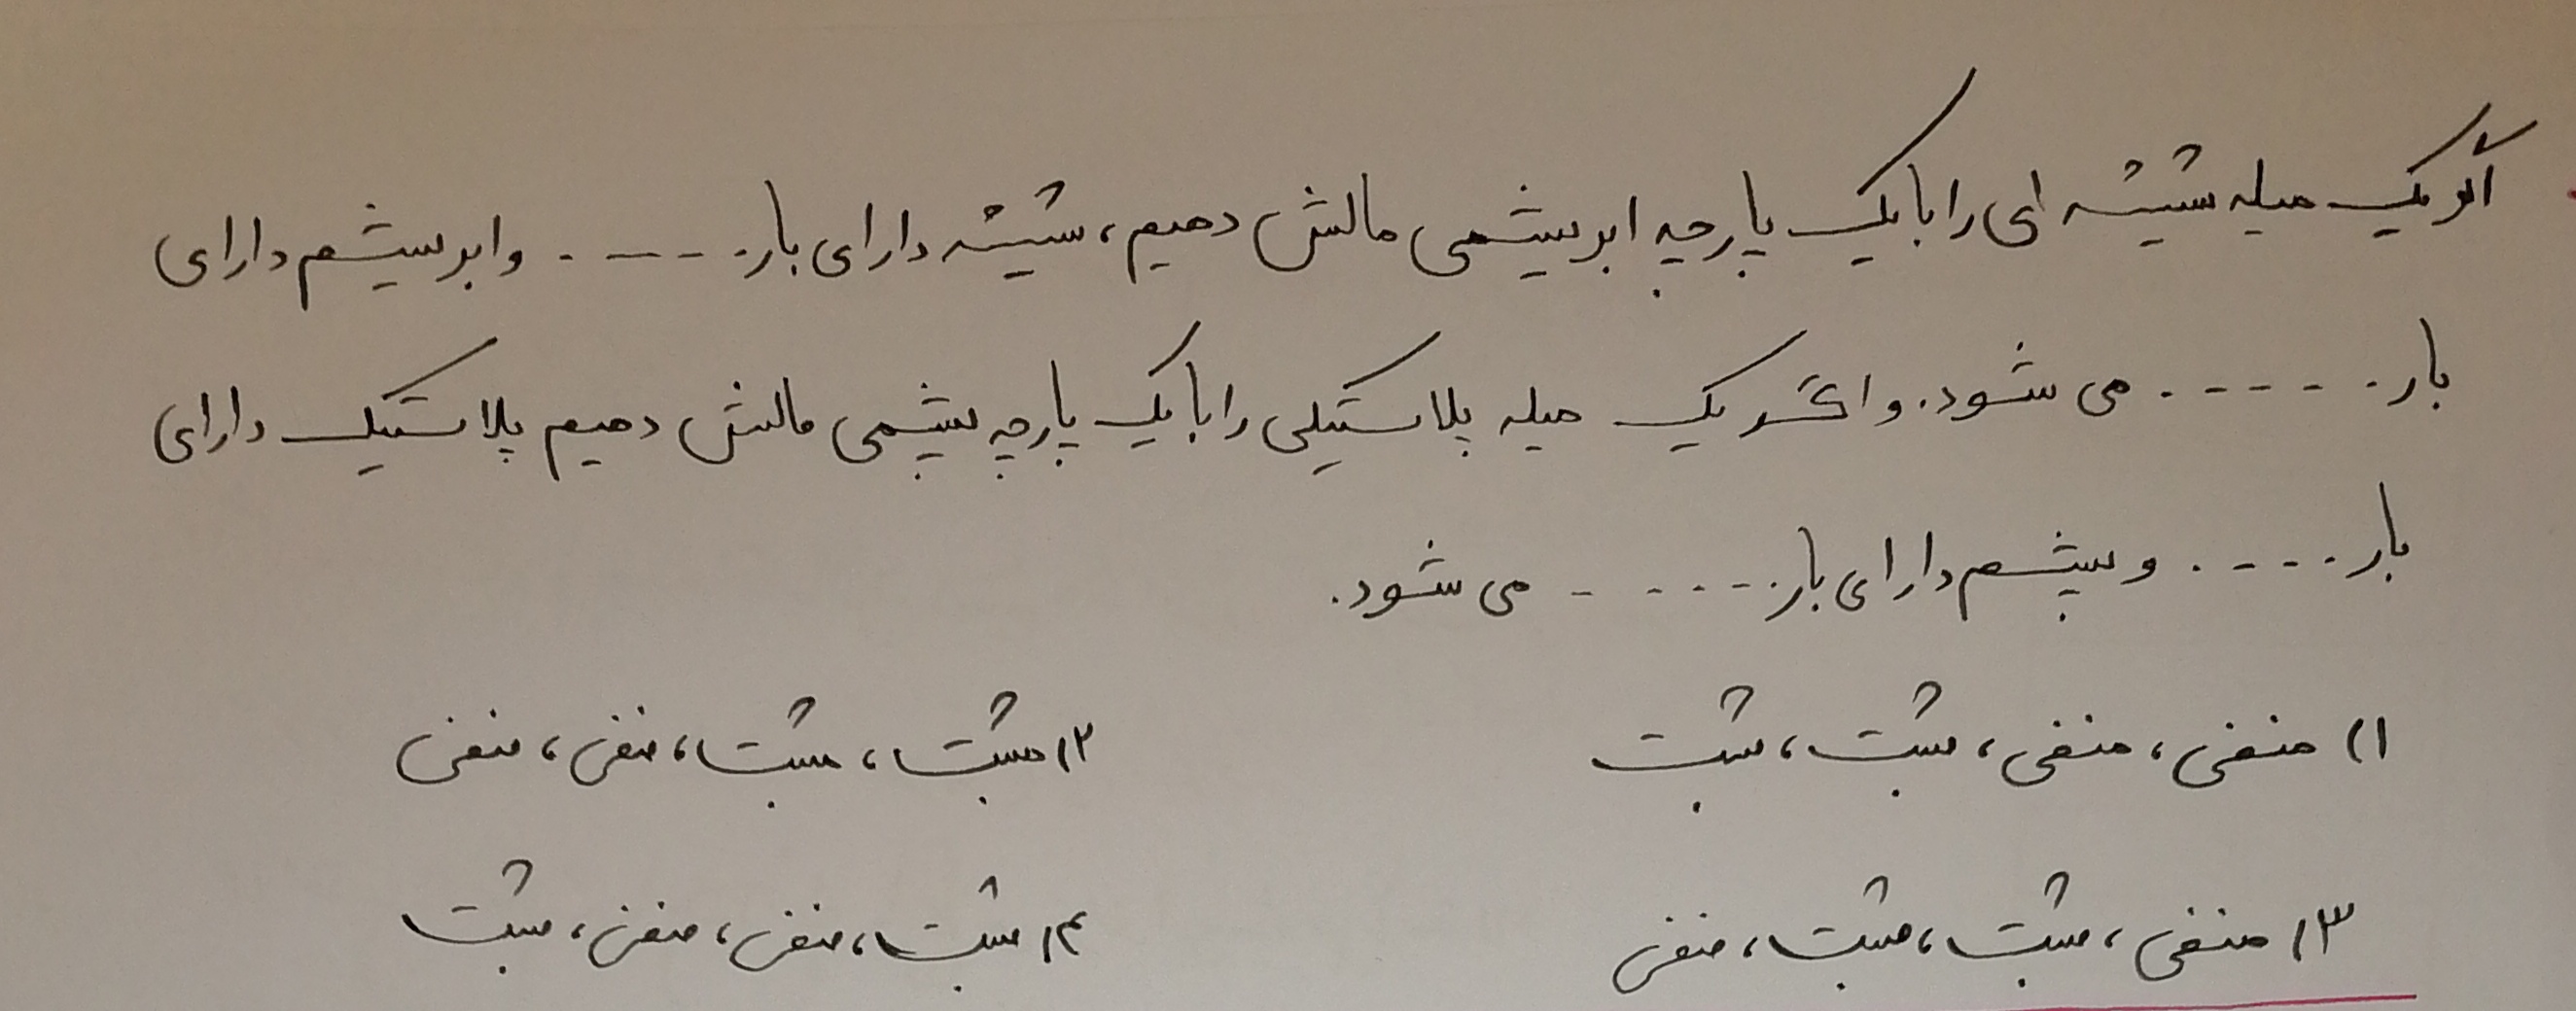 اگر یک میله شیشه ای را با یک پارچه ابریشمی مالش دهیم، شیشه دارای بار..... و ابریشم دارای
بار...... می شود. و اگر یک میله پلاستیکی را با یک پارچه پشمی مالش دهیم پلاستیک دارای
بار..... و پشم دارای بار...... می شود.
۱) منفی، منفی، مثبت، مثبت
۲) مثبت، مثبت، منفی، منفی
۳) منفی، مثبت، مثبت، منفی
۴) مثبت، منفی، منفی، مثبت